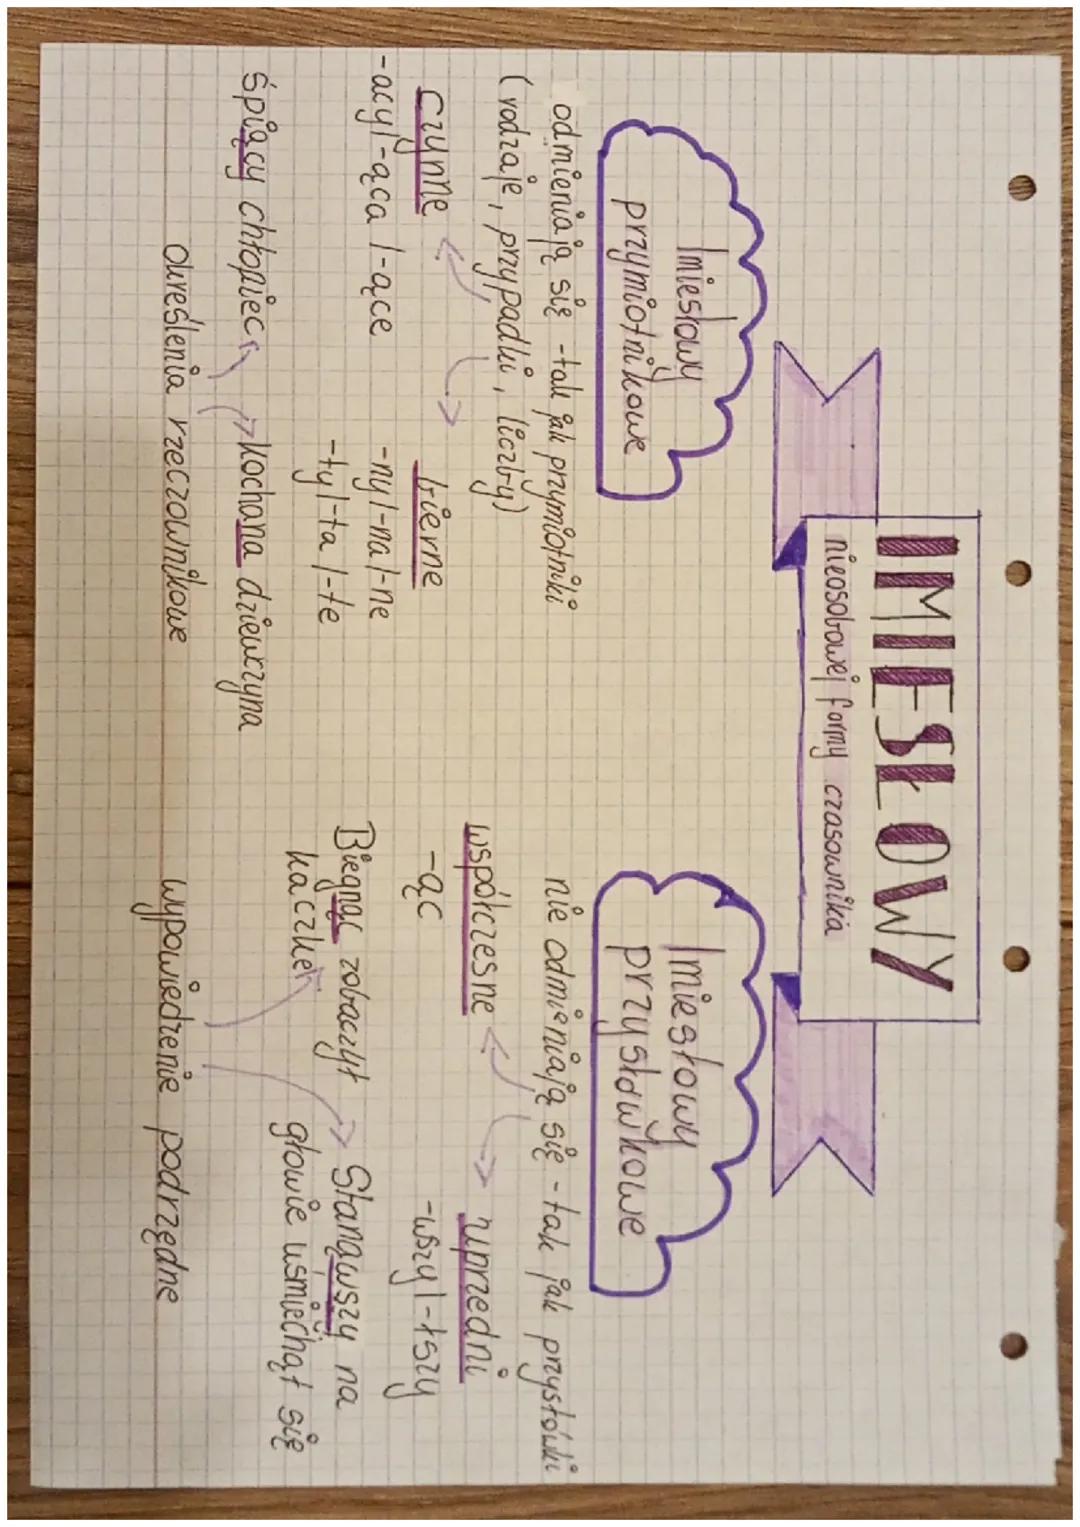 IMIESŁOWY
nieosobowej formy czasownika
Imiesłowy
przymiotnikowe
odmieniają się - tak jak przymiotniki
(rodzaje, przypadki, liczby)
czynne
bierne
-acy/-ąca/-ące
-ny/-na/-ne
-ty/-ta/-te
śpiący chłopiec
kochana dziewczyna
określenia rzeczownikowe
Imiesłowy
przysłówkowe
nie odmieniają się - tak jak przysłówki
współczesne
uprzedni
-ąc
-wszy/-łszy
Biegnąc zobaczył
kaczkę
Stanąwszy na
głowie uśmiechął się
wypowiedzenie podrzędne